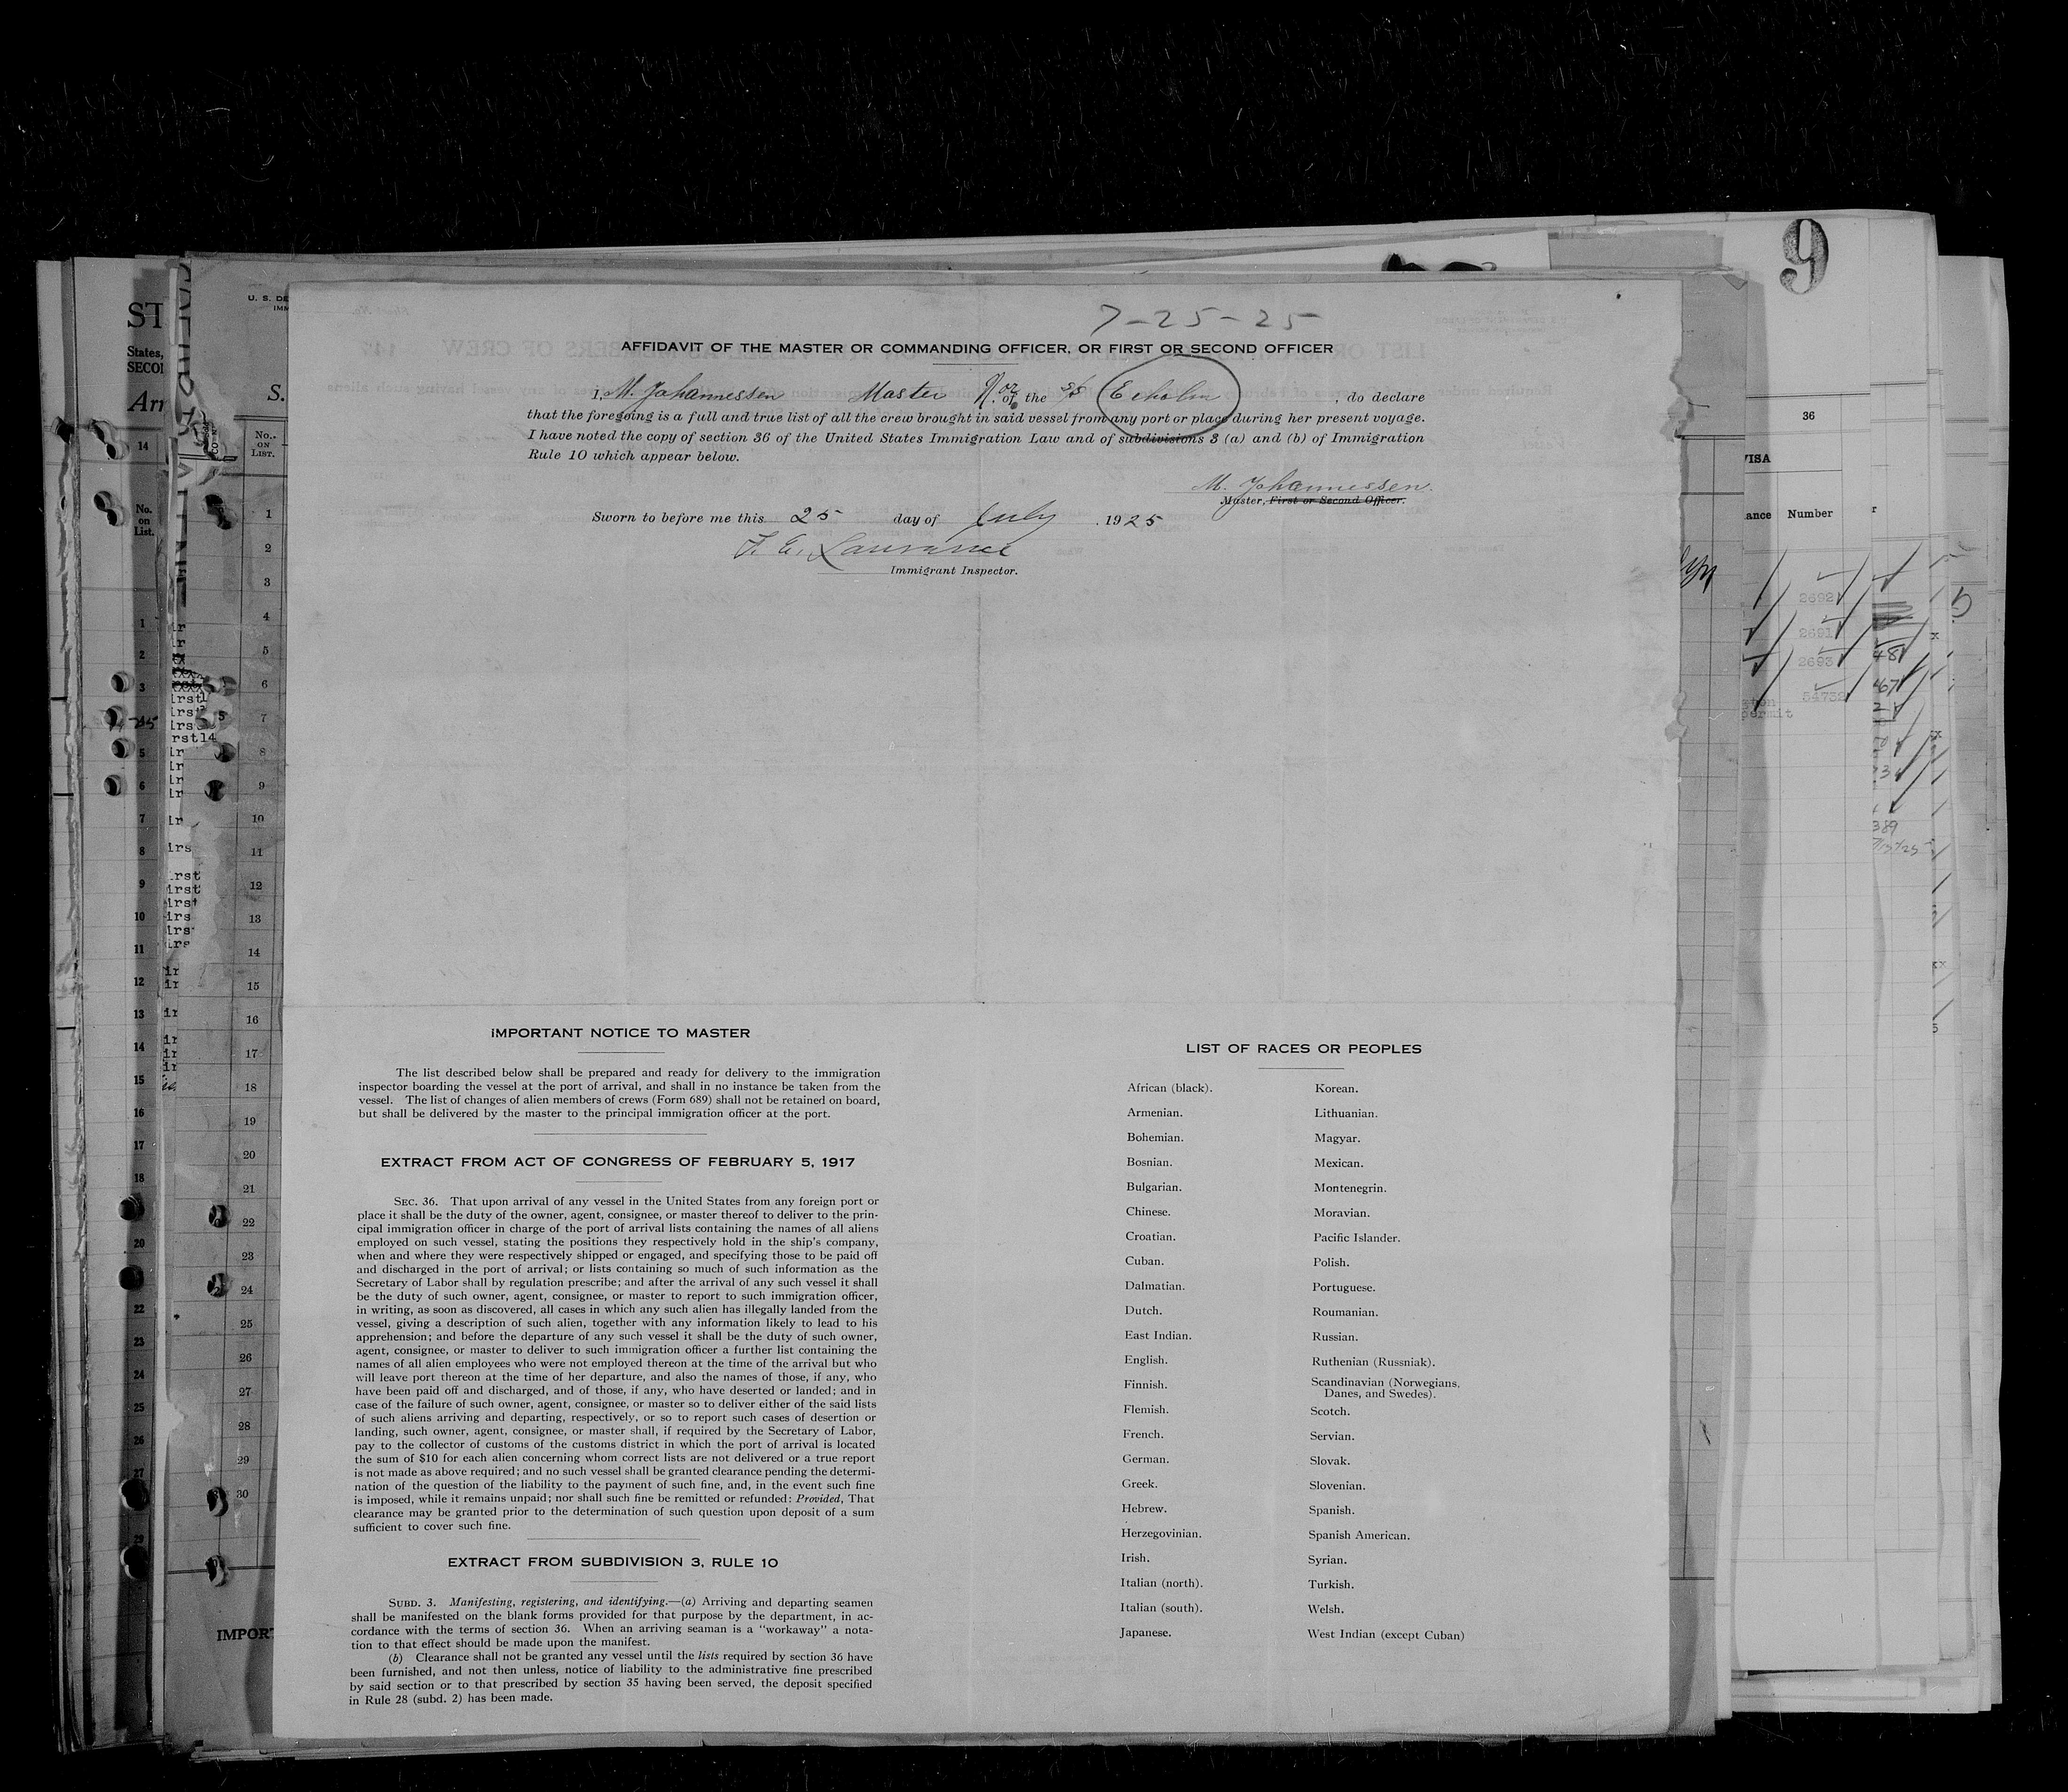 7-25-25
AFFIDAVIT OF THE MASTER OR COMMANDING OFFICER, OR FIRST OR SECOND OFFICER
I, M. Johannessen Master Nor of the SS Ekholm, do declare
that the foregoing is a full and true list of all the crew brought in said vessel from any port or place during her present voyage.
I have noted the copy of section 36 of the United States Immigration Law and of subdivisions 3 (a) and (b) of Immigration
Rule 10 which appear below.
M. Johannessen.
Master, First or Second Officer.
Sworn to before me this 25 day of July, 1925
F. E. Lawrance
Immigrant Inspector.
IMPORTANT NOTICE TO MASTER
The list described below shall be prepared and ready for delivery to the immigration
inspector boarding the vessel at the port of arrival, and shall in no instance be taken from the
vessel. The list of changes of alien members of crews (Form 689) shall not be retained on board,
but shall be delivered by the master to the principal immigration officer at the port.
EXTRACT FROM ACT OF CONGRESS OF FEBRUARY 5, 1917
SEC. 36. That upon arrival of any vessel in the United States from any foreign port or
place it shall be the duty of the owner, agent, consignee, or master thereof to deliver to the prin-
cipal immigration officer in charge of the port of arrival lists containing the names of all aliens
employed on such vessel, stating the positions they respectively hold in the ship's company,
when and where they were respectively shipped or engaged, and specifying those to be paid off
and discharged in the port of arrival; or lists containing so much of such information as the
Secretary of Labor shall by regulation prescribe; and after the arrival of any such vessel it shall
be the duty of such owner, agent, consignee, or master to report to such immigration officer,
in writing, as soon as discovered, all cases in which any such alien has illegally landed from the
vessel, giving a description of such alien, together with any information likely to lead to his
apprehension; and before the departure of any such vessel it shall be the duty of such owner,
agent, consignee, or master to deliver to such immigration officer a further list containing the
names of all alien employees who were not employed thereon at the time of the arrival but who
will leave port thereon at the time of her departure, and also the names of those, if any, who
have been paid off and discharged, and of those, if any, who have deserted or landed; and in
case of the failure of such owner, agent, consignee, or master so to deliver either of the said lists
of such aliens arriving and departing, respectively, or so to report such cases of desertion or
landing, such owner, agent, consignee, or master shall, if required by the Secretary of Labor,
pay to the collector of customs of the customs district in which the port of arrival is located
the sum of $10 for each alien concerning whom correct lists are not delivered or a true report
is not made as above required; and no such vessel shall be granted clearance pending the determi-
nation of the question of the liability to the payment of such fine, and, in the event such fine
is imposed, while it remains unpaid; nor shall such fine be remitted or refunded: Provided, That
clearance may be granted prior to the determination of such question upon deposit of a sum
sufficient to cover such fine.
EXTRACT FROM SUBDIVISION 3, RULE 10
SUBD. 3. Manifesting, registering, and identifying.—(a) Arriving and departing seamen
shall be manifested on the blank forms provided for that purpose by the department, in ac-
cordance with the terms of section 36. When an arriving seaman is a "workaway" a nota-
tion to that effect should be made upon the manifest.
(b) Clearance shall not be granted any vessel until the lists required by section 36 have
been furnished, and not then unless, notice of liability to the administrative fine prescribed
by said section or to that prescribed by section 35 having been served, the deposit specified
in Rule 28 (subd. 2) has been made.
LIST OF RACES OR PEOPLES
African (black).
Armenian.
Bohemian.
Bosnian.
Bulgarian.
Chinese.
Croatian.
Cuban.
Dalmatian.
Dutch.
East Indian.
English.
Finnish.
Flemish.
French.
German.
Greek.
Hebrew.
Herzegovinian.
Irish.
Italian (north).
Italian (south).
Japanese.
Korean.
Lithuanian.
Magyar.
Mexican.
Montenegrin.
Moravian.
Pacific Islander.
Polish.
Portuguese.
Roumanian.
Russian.
Ruthenian (Russniak).
Scandinavian (Norwegians,
Danes, and Swedes).
Scotch.
Servian.
Slovak.
Slovenian.
Spanish.
Spanish American.
Syrian.
Turkish.
Welsh.
West Indian (except Cuban)
9
36
VISA
Number
2692
2691
2693
54732
permit